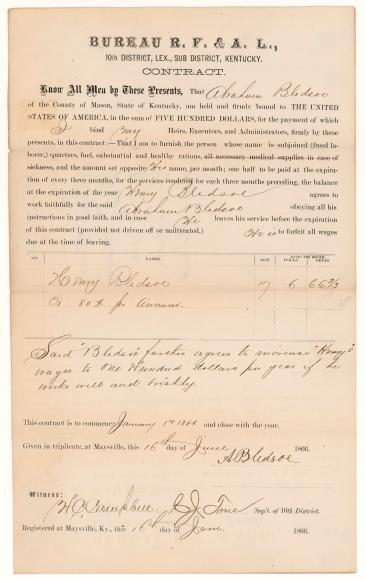 BUREAU R. F. & A. L.,
10th DISTRICT, LEX., SUB DISTRICT, KENTUCKY.
CONTRACT.
Know All Men by These Presents, That Abraham Bledsoe
of the County of Mason, State of Kentucky, am held and firmly bound to THE UNITED
STATES OF AMERICA, in the sum of FIVE HUNDRED DOLLARS, for the payment of which
I bind my Heirs, Executors, and Administrators, firmly by these
presents, in this contract:—That I am to furnish the person whose name is subjoined (freed la-
borer,) quarters, fuel, substantial and healthy rations, all necessary medical supplies in case of
sickness, and the amount set opposite His name, per month; one half to be paid at the expira-
tion of every three months, for the services rendered for each three months preceding, the balance
at the expiration of the year Henry Bledsoe agrees to
work faithfully for the said Abraham Bledsoe obeying all his
instructions in good faith, and in case He leaves his service before the expiration
of this contract (provided not driven off or maltreated.) He is to forfeit all wages
due at the time of leaving.
NO. NAMES. AGE RATE PER MONTH
DOLLARS CENTS
Henry Bledsoe 17 6 66 2/3
Or 80$ per Annum.
Said "Bledsoe" further agrees to increase "Henry's"
wages to One Hundred dollars per year if he
works well and briskly.
This contract is to commence January 1st 1866 and close with the year.
Given in triplicate, at Maysville, this 16th day of 1866.
A Bledsoe
Witness:
H. C. Campbell C. J. True Sup't. of 10th District.
Registered at Maysville, Ky., this 16th day of 1866.